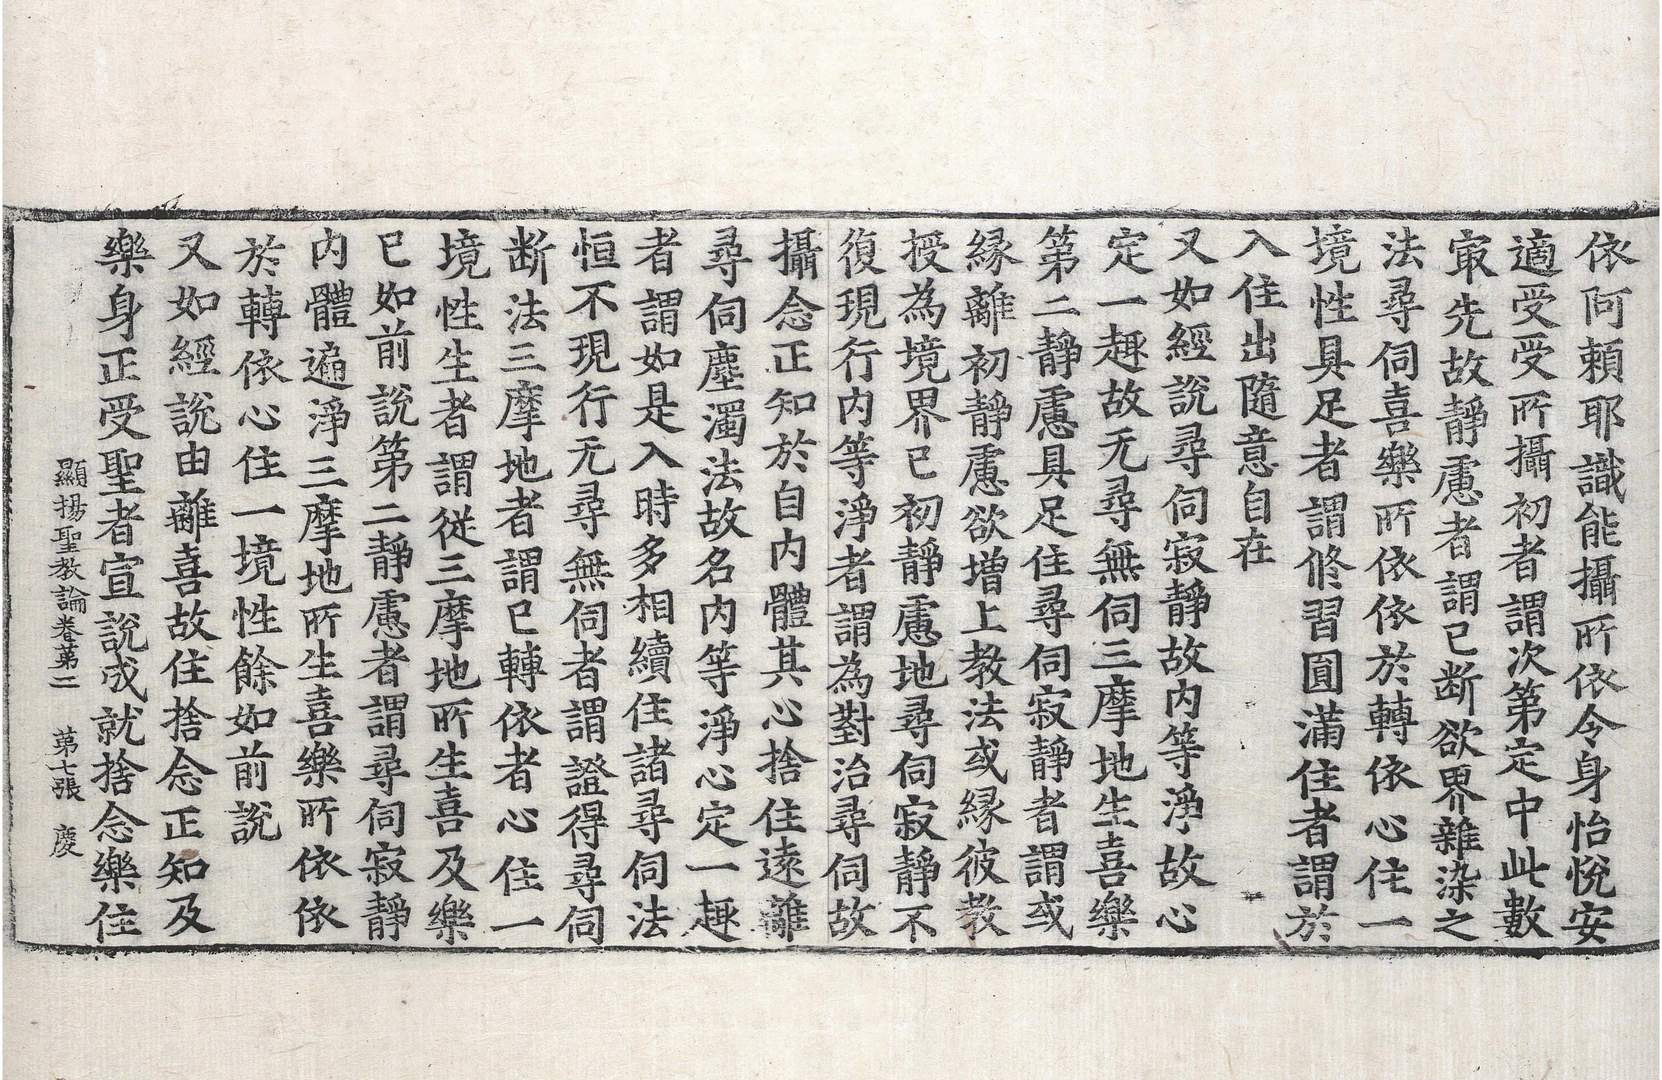 依阿賴耶識能攝所依令身怡悅安
適受受所攝初者謂次第定中此數
㝡先故靜慮者謂已断欲界雜染之
法尋伺喜樂所依依於轉依心住一
境性具足者謂修習圓滿住者謂於
入住出隨意自在
又如經說尋伺寂靜故內等淨故心
定一趣故无尋無伺三摩地生喜樂
第二靜慮具足住尋伺寂靜者謂或
緣離初靜慮欲增上教法或緣彼教
授為境界已初靜慮地尋伺寂靜不
復現行內等淨者謂為對治尋伺故
攝念正知於自內體其心捨住遠離
尋伺塵濁法故名內等淨心定一趣
者謂如是入時多相續住諸尋伺法
恒不現行无尋無伺者謂證得尋伺
断法三摩地者謂已轉依者心住一
境性生者謂從三摩地所生喜及樂
已如前說第二靜慮者謂尋伺寂靜
內體遍淨三摩地所生喜樂所依依
於轉依心住一境性餘如前說
又如經說由離喜故住捨念正知及
樂身正受聖者宣說成就捨念樂住
顯揚聖教論卷第二　第七張　慶